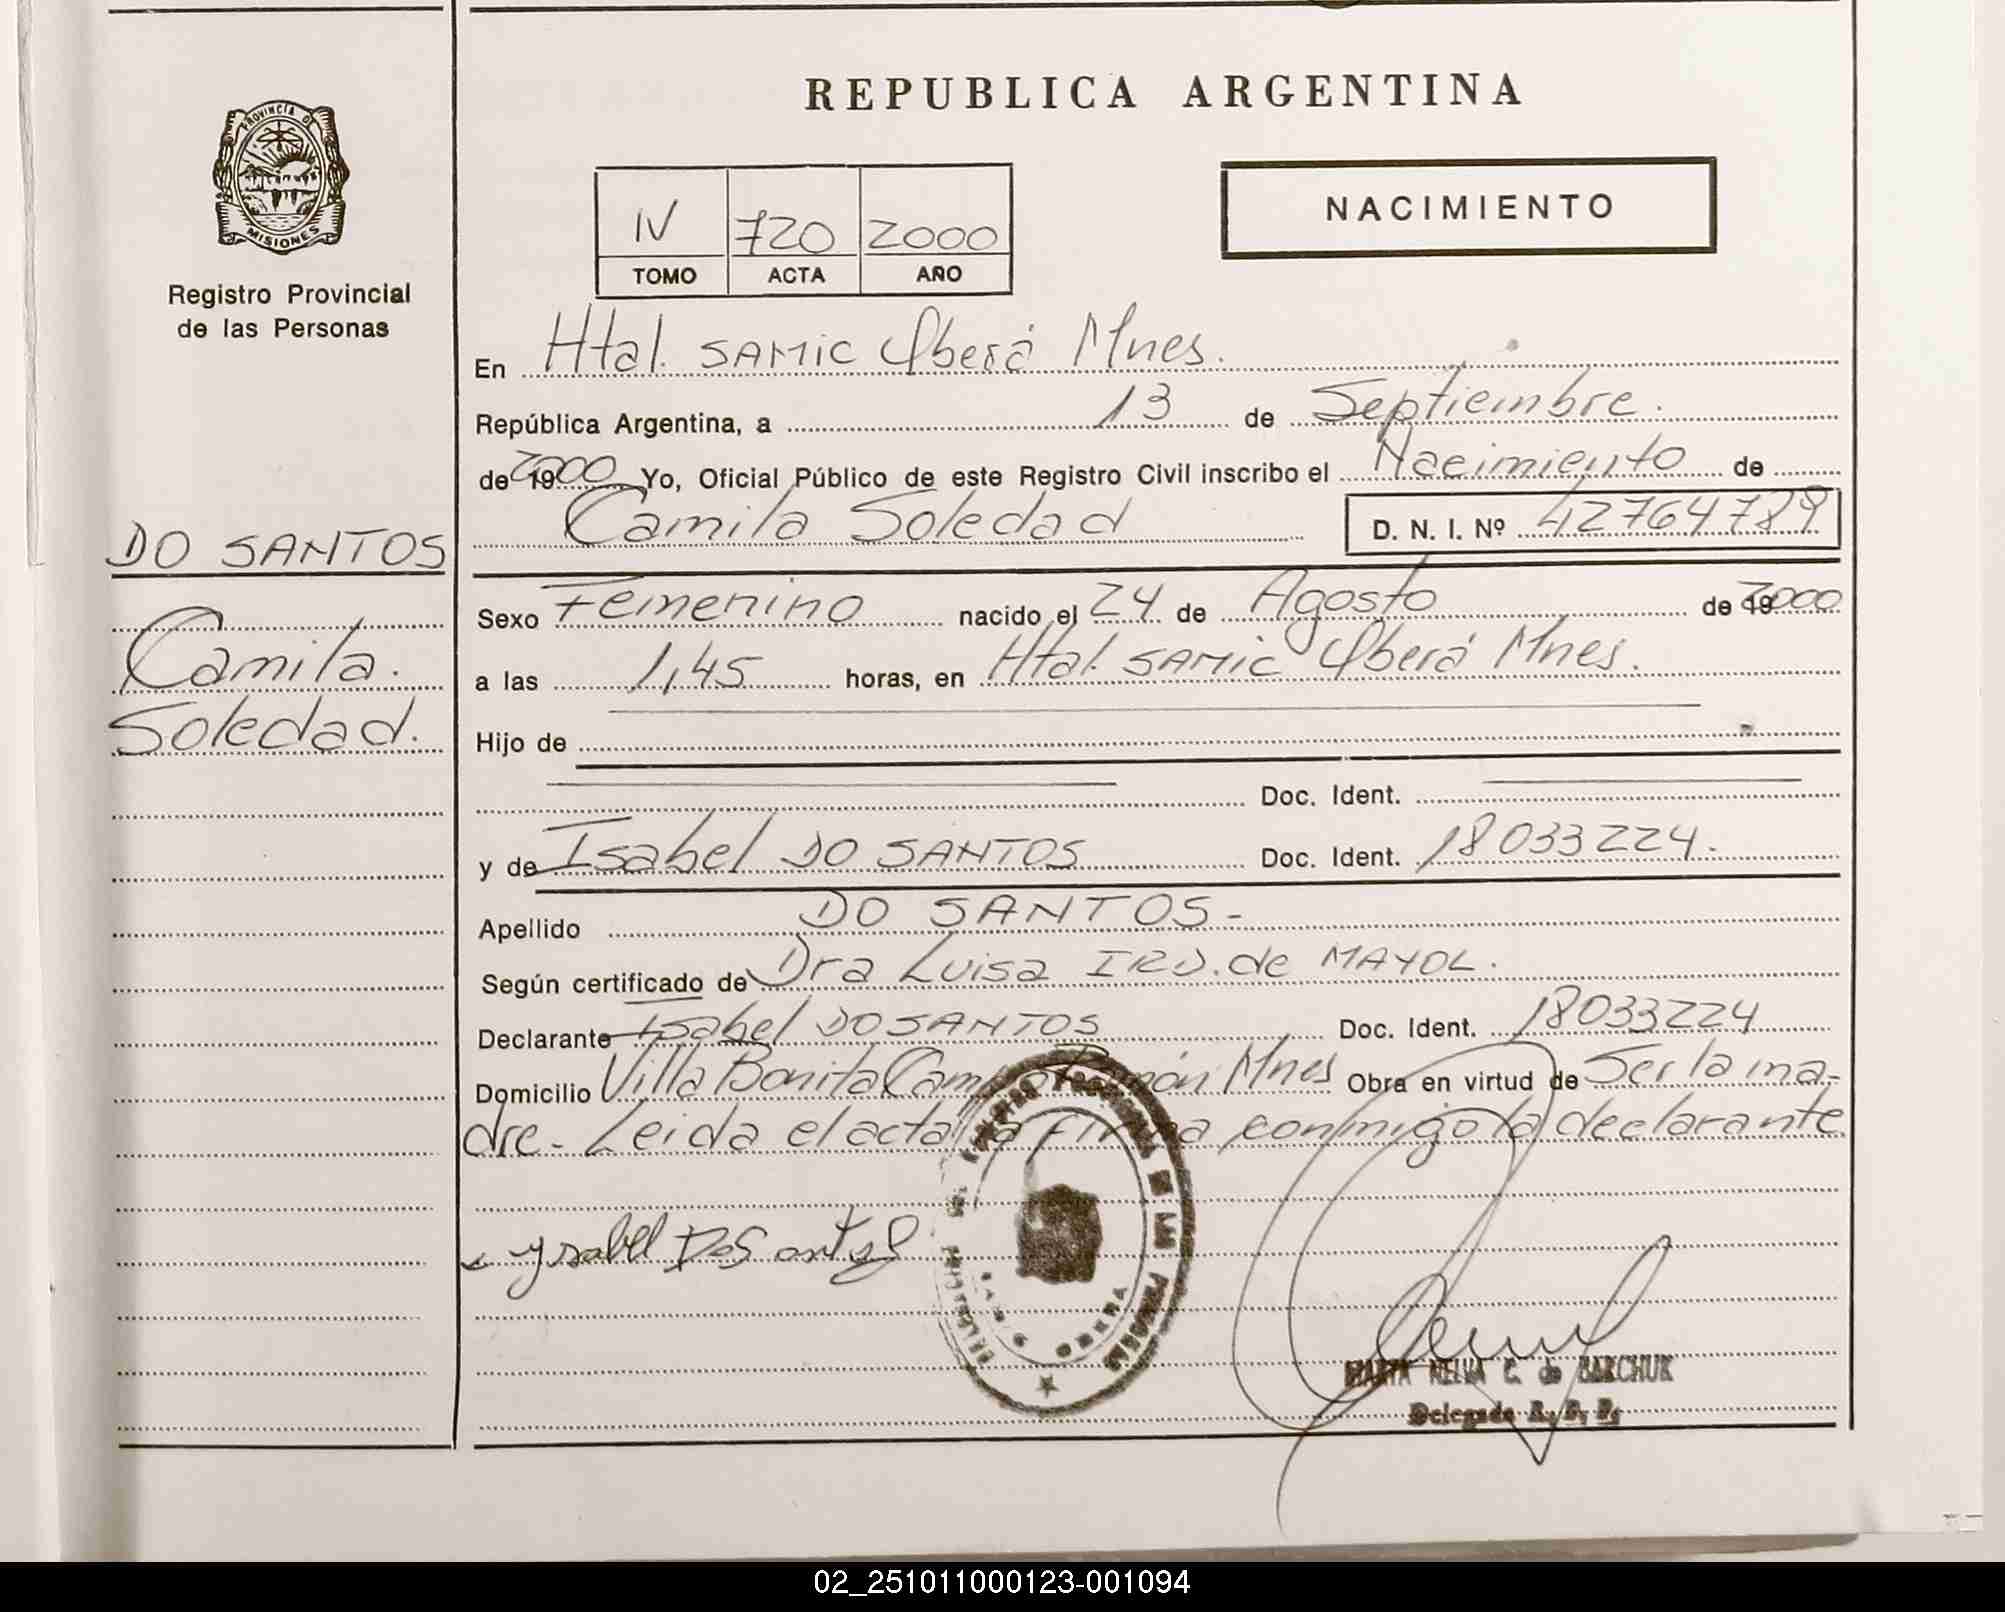 REPUBLICA ARGENTINA
PROVINCIA DE
MISIONES
Registro Provincial
de las Personas
NACIMIENTO
IV 720 2000
TOMO ACTA AÑO
En Htal. SAMIC Oberá Mnes.
República Argentina, a 13 de Septiembre.
de 19 2000 Yo, Oficial Público de este Registro Civil inscribo el Nacimiento de
Camila Soledad D. N. I. Nº 42764789
DO SANTOS
Camila.
Soledad.
Sexo Femenino nacido el 24 de Agosto de 19 2000
a las 1,45 horas, en Htal. SAMIC Oberá Mnes.
Hijo de
Doc. Ident.
y de Isabel DO SANTOS Doc. Ident. 18033224.
Apellido DO SANTOS-
Según certificado de Dra Luisa de MAYOL.
Declarante Isabel DO SANTOS Doc. Ident. 18033224
Domicilio Villa Bonita Campo Ramón Mnes Obra en virtud de Ser la ma-
dre- Leida el acta la firma conmigo la declarante
Ysabel DoSantos
OBERA
MARTA NELVA C. de BARCHUK
Delegada R. P. P.
02_251011000123-001094